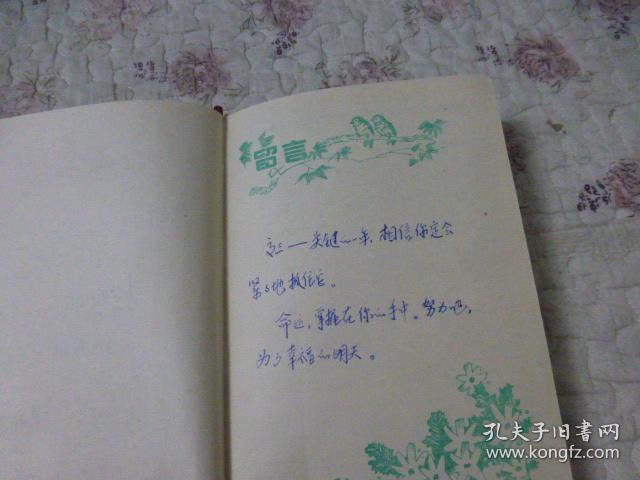 留言
高三——关键的一年,相信你定会
紧紧地抓住它。
命运,掌握在你的手中。努力吧,
为了幸福的明天。
孔夫子旧书网
kongfz.com